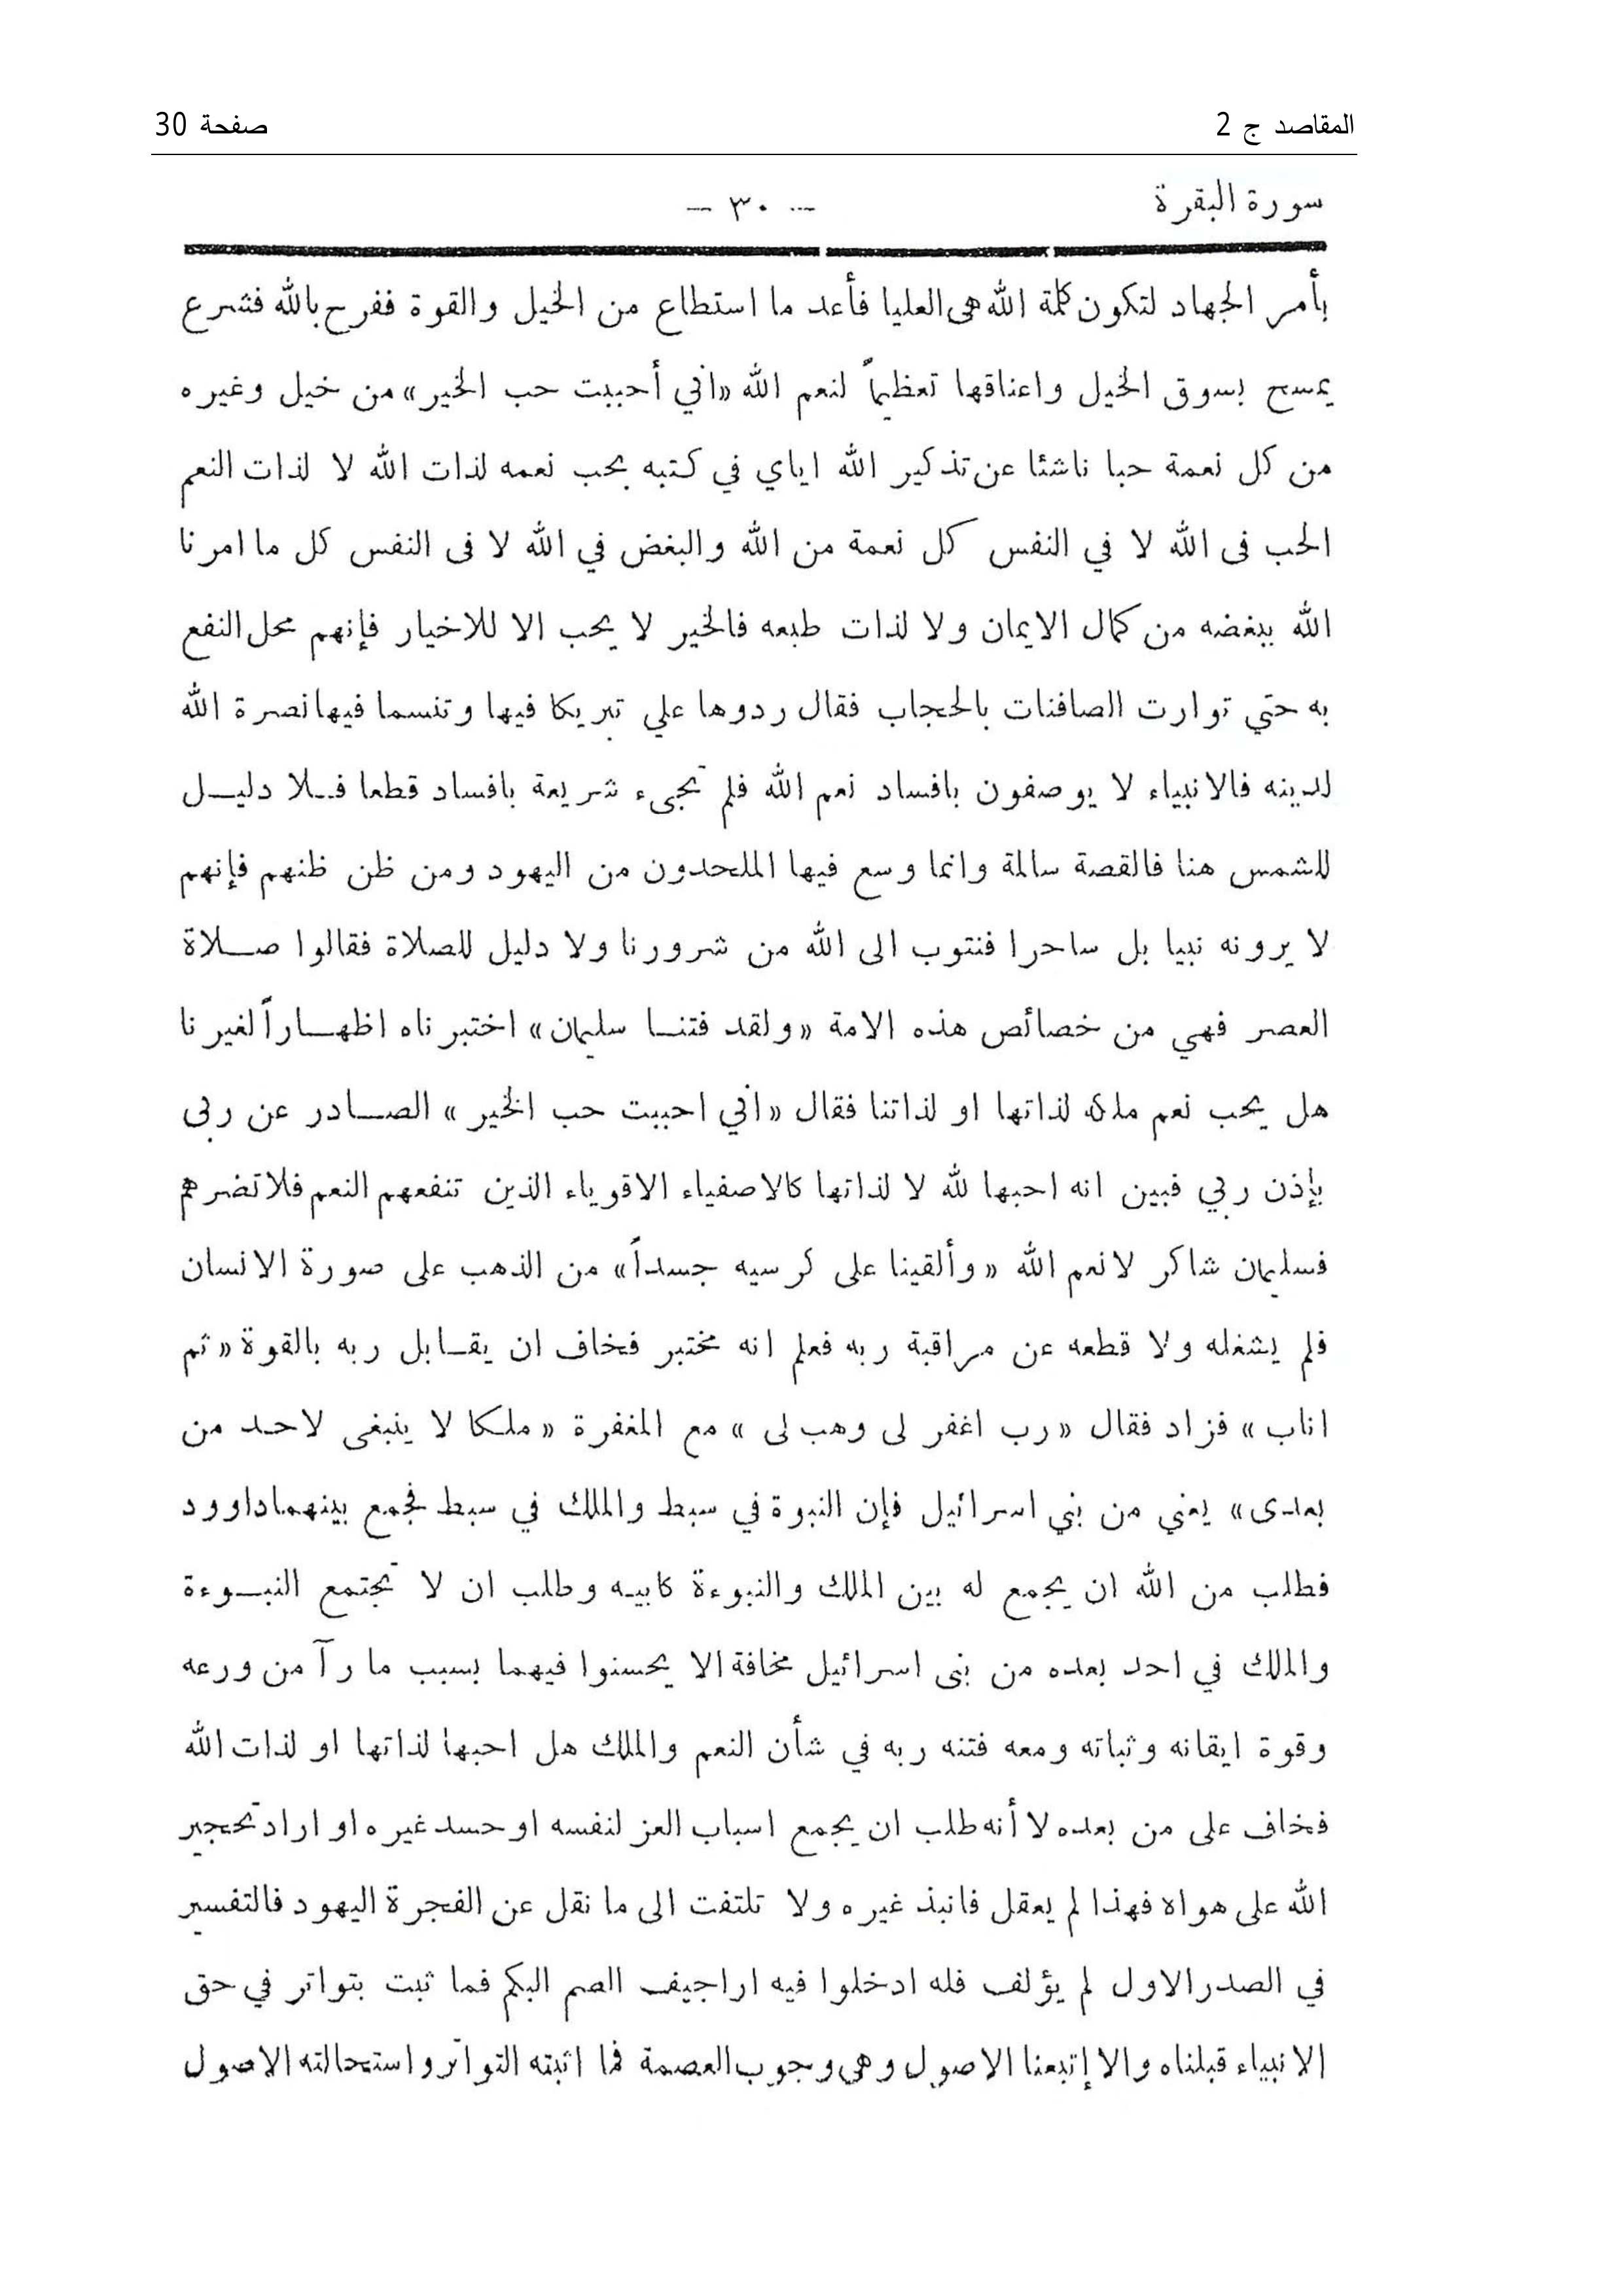 المقاصد ج 2 صفحة 30
سورة البقرة — ٣٠ —
بأمر الجهاد لتكون كلمة الله هى العليا فأعد ما استطاع من الخيل والقوة ففرح بالله فشرع
يمسح بسوق الخيل واعناقها تعظيماً لنعم الله «اني أحببت حب الخير» من خيل وغيره
من كل نعمة حبا ناشئا عن تذكير الله اياي في كتبه بحب نعمه لذات الله لا لذات النعم
الحب فى الله لا في النفس كل نعمة من الله والبغض في الله لا فى النفس كل ما امرنا
الله ببغضه من كمال الايمان ولا لذات طبعه فالخير لا يحب الا للاخيار فإنهم محل النفع
به حتي توارت الصافنات بالحجاب فقال ردوها علي تبريكا فيها وتنسما فيها نصرة الله
لدينه فالانبياء لا يوصفون بافساد نعم الله فلم تجىء شريعة بافساد قطعا فلا دليل
للشمس هنا فالقصة سالمة وانما وسع فيها الملحدون من اليهود ومن ظن ظنهم فإنهم
لا يرونه نبيا بل ساحرا فنتوب الى الله من شرورنا ولا دليل للصلاة فقالوا صلاة
العصر فهي من خصائص هذه الامة «ولقد فتنا سليمان» اختبرناه اظهاراً لغيرنا
هل يحب نعم ملكه لذاتها او لذاتنا فقال «اني احببت حب الخير» الصادر عن ربى
بإذن ربي فبين انه احبها لله لا لذاتها كالاصفياء الاقوياء الذين تنفعهم النعم فلا تضرهم
فسليمان شاكر لانعم الله «وألقينا على كرسيه جسداً» من الذهب على صورة الانسان
فلم يشغله ولا قطعه عن مراقبة ربه فعلم انه مختبر فخاف ان يقابل ربه بالقوة «ثم
اناب» فزاد فقال «رب اغفر لى وهب لى» مع المغفرة «ملكا لا ينبغى لاحد من
بعدى» يعني من بني اسرائيل فإن النبوة في سبط والملك في سبط فجمع بينهما داوود
فطلب من الله ان يجمع له بين الملك والنبوءة كابيه وطلب ان لا تجتمع النبوءة
والملك في احد بعده من بنى اسرائيل مخافة الا يحسنوا فيهما بسبب ما رآ من ورعه
وقوة ايقانه وثباته ومعه فتنه ربه في شأن النعم والملك هل احبها لذاتها او لذات الله
فخاف على من بعده لا أنه طلب ان يجمع اسباب العز لنفسه او حسد غيره او اراد تحجير
الله على هواه فهذا لم يعقل فانبذ غيره ولا تلتفت الى ما نقل عن الفجرة اليهود فالتفسير
في الصدر الاول لم يؤلف فله ادخلوا فيه اراجيف الصم البكم فما ثبت بتواتر في حق
الانبياء قبلناه والا إتبعنا الاصول وهى وجوب العصمة فما اثبته التواتر واستحالته الاصول